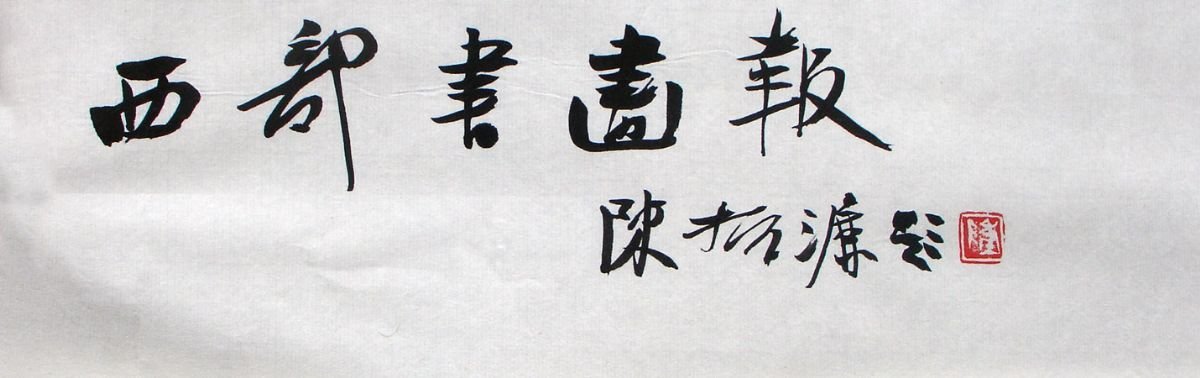 西部書畫報
陳振濂題